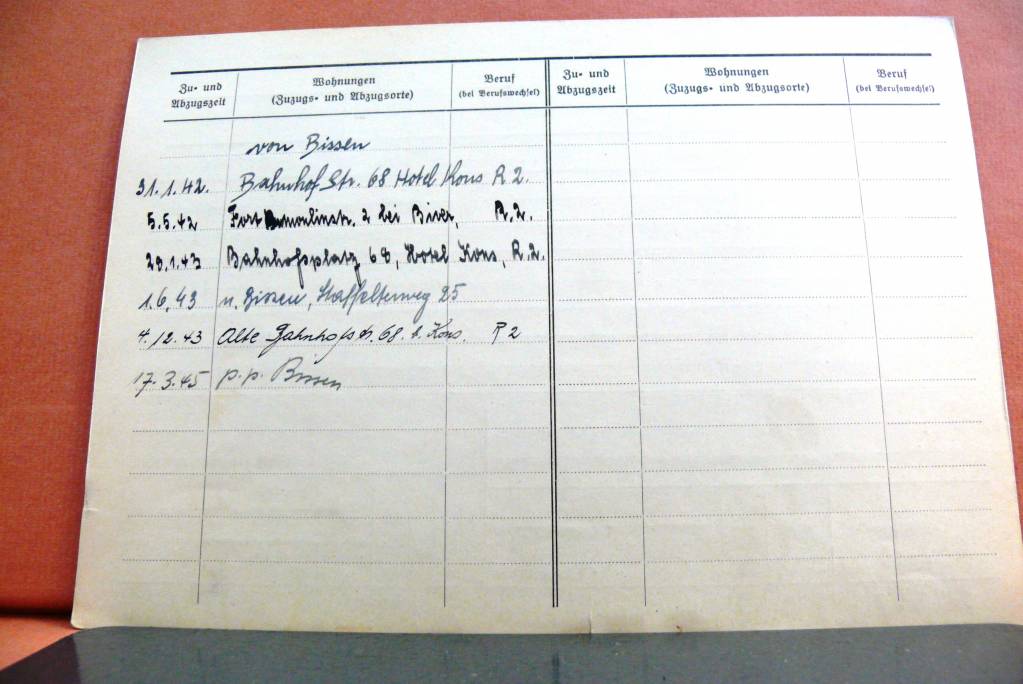 Zu- und Abzugszeit
Wohnungen (Zuzugs- und Abzugsorte)
Beruf (bei Berufswechsel)
Zu- und Abzugszeit
Wohnungen (Zuzugs- und Abzugsorte)
Beruf (bei Berufswechsel)
von Bissen
31.1.42. Bahnhof Str. 68 Hotel Kons R 2.
5.5.42 Fort Dumoulinstr. 2 bei Biver, R.2.
29.1.43 Bahnhofsplatz 68, Hotel Kons, R.2.
1.6.43 n. Bissen, Staffelterweg 25
4.12.43 Alte Bahnhofstr. 68. b. Kons. R 2
17.3.45 p.p. Bissen